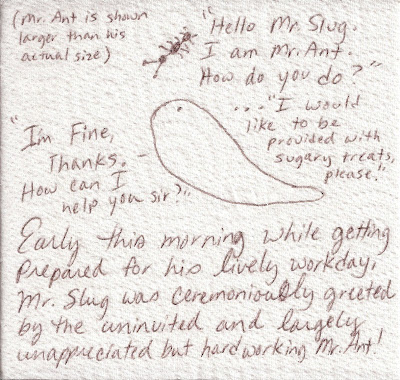 (Mr. Ant is shown
larger than his
actual size)
"Hello Mr. Slug.
I am Mr. Ant.
How do you do?"
"I'm Fine,
Thanks.
How can I
help you sir?"
..."I would
like to be
provided with
sugary treats,
please."
Early this morning while getting
prepared for his lively workday,
Mr. Slug was ceremoniously greeted
by the uninvited and largely
unappreciated but hardworking Mr. Ant!